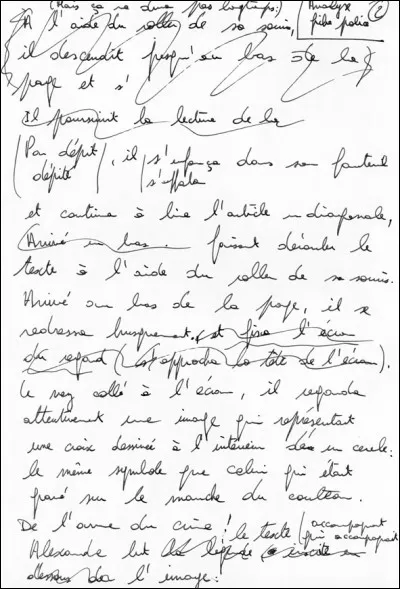 (Mais ça ne dure pas longtemps.) Analyse
A l'aide du roller de sa souris, fiche police 2
il descendit jusqu'au bas de la
page et s'
Il poursuivit la lecture de la
Par dépit, il s'enfonça dans son fauteuil
dépité s'affala
et continua à lire l'article en diagonale,
Arrivé en bas. faisant dérouler le
texte à l'aide du roller de sa souris.
Arrivé au bas de la page, il se
redressa brusquement. et fixa l'écran
du regard (et approcha la tête de l'écran).
Le nez collé à l'écran, il regarda
attentivement une image qui représentait
une croix dessinée à l'intérieur d'un cercle:
le même symbole que celui qui était
gravé sur le manche du couteau.
De l'arme du crime! le texte accompagnant
qui accompagnait
Alexandre lut la légende inscrite en
dessous de l'image: